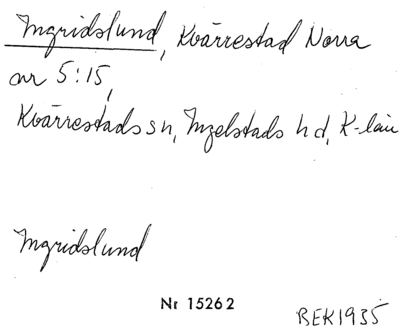 Ingridslund, Kvärrestad Norra
nr 5:15,
Kvärrestads sn, Ingelstads hd, K-län
Ingridslund
Nr 15262
BEK1935